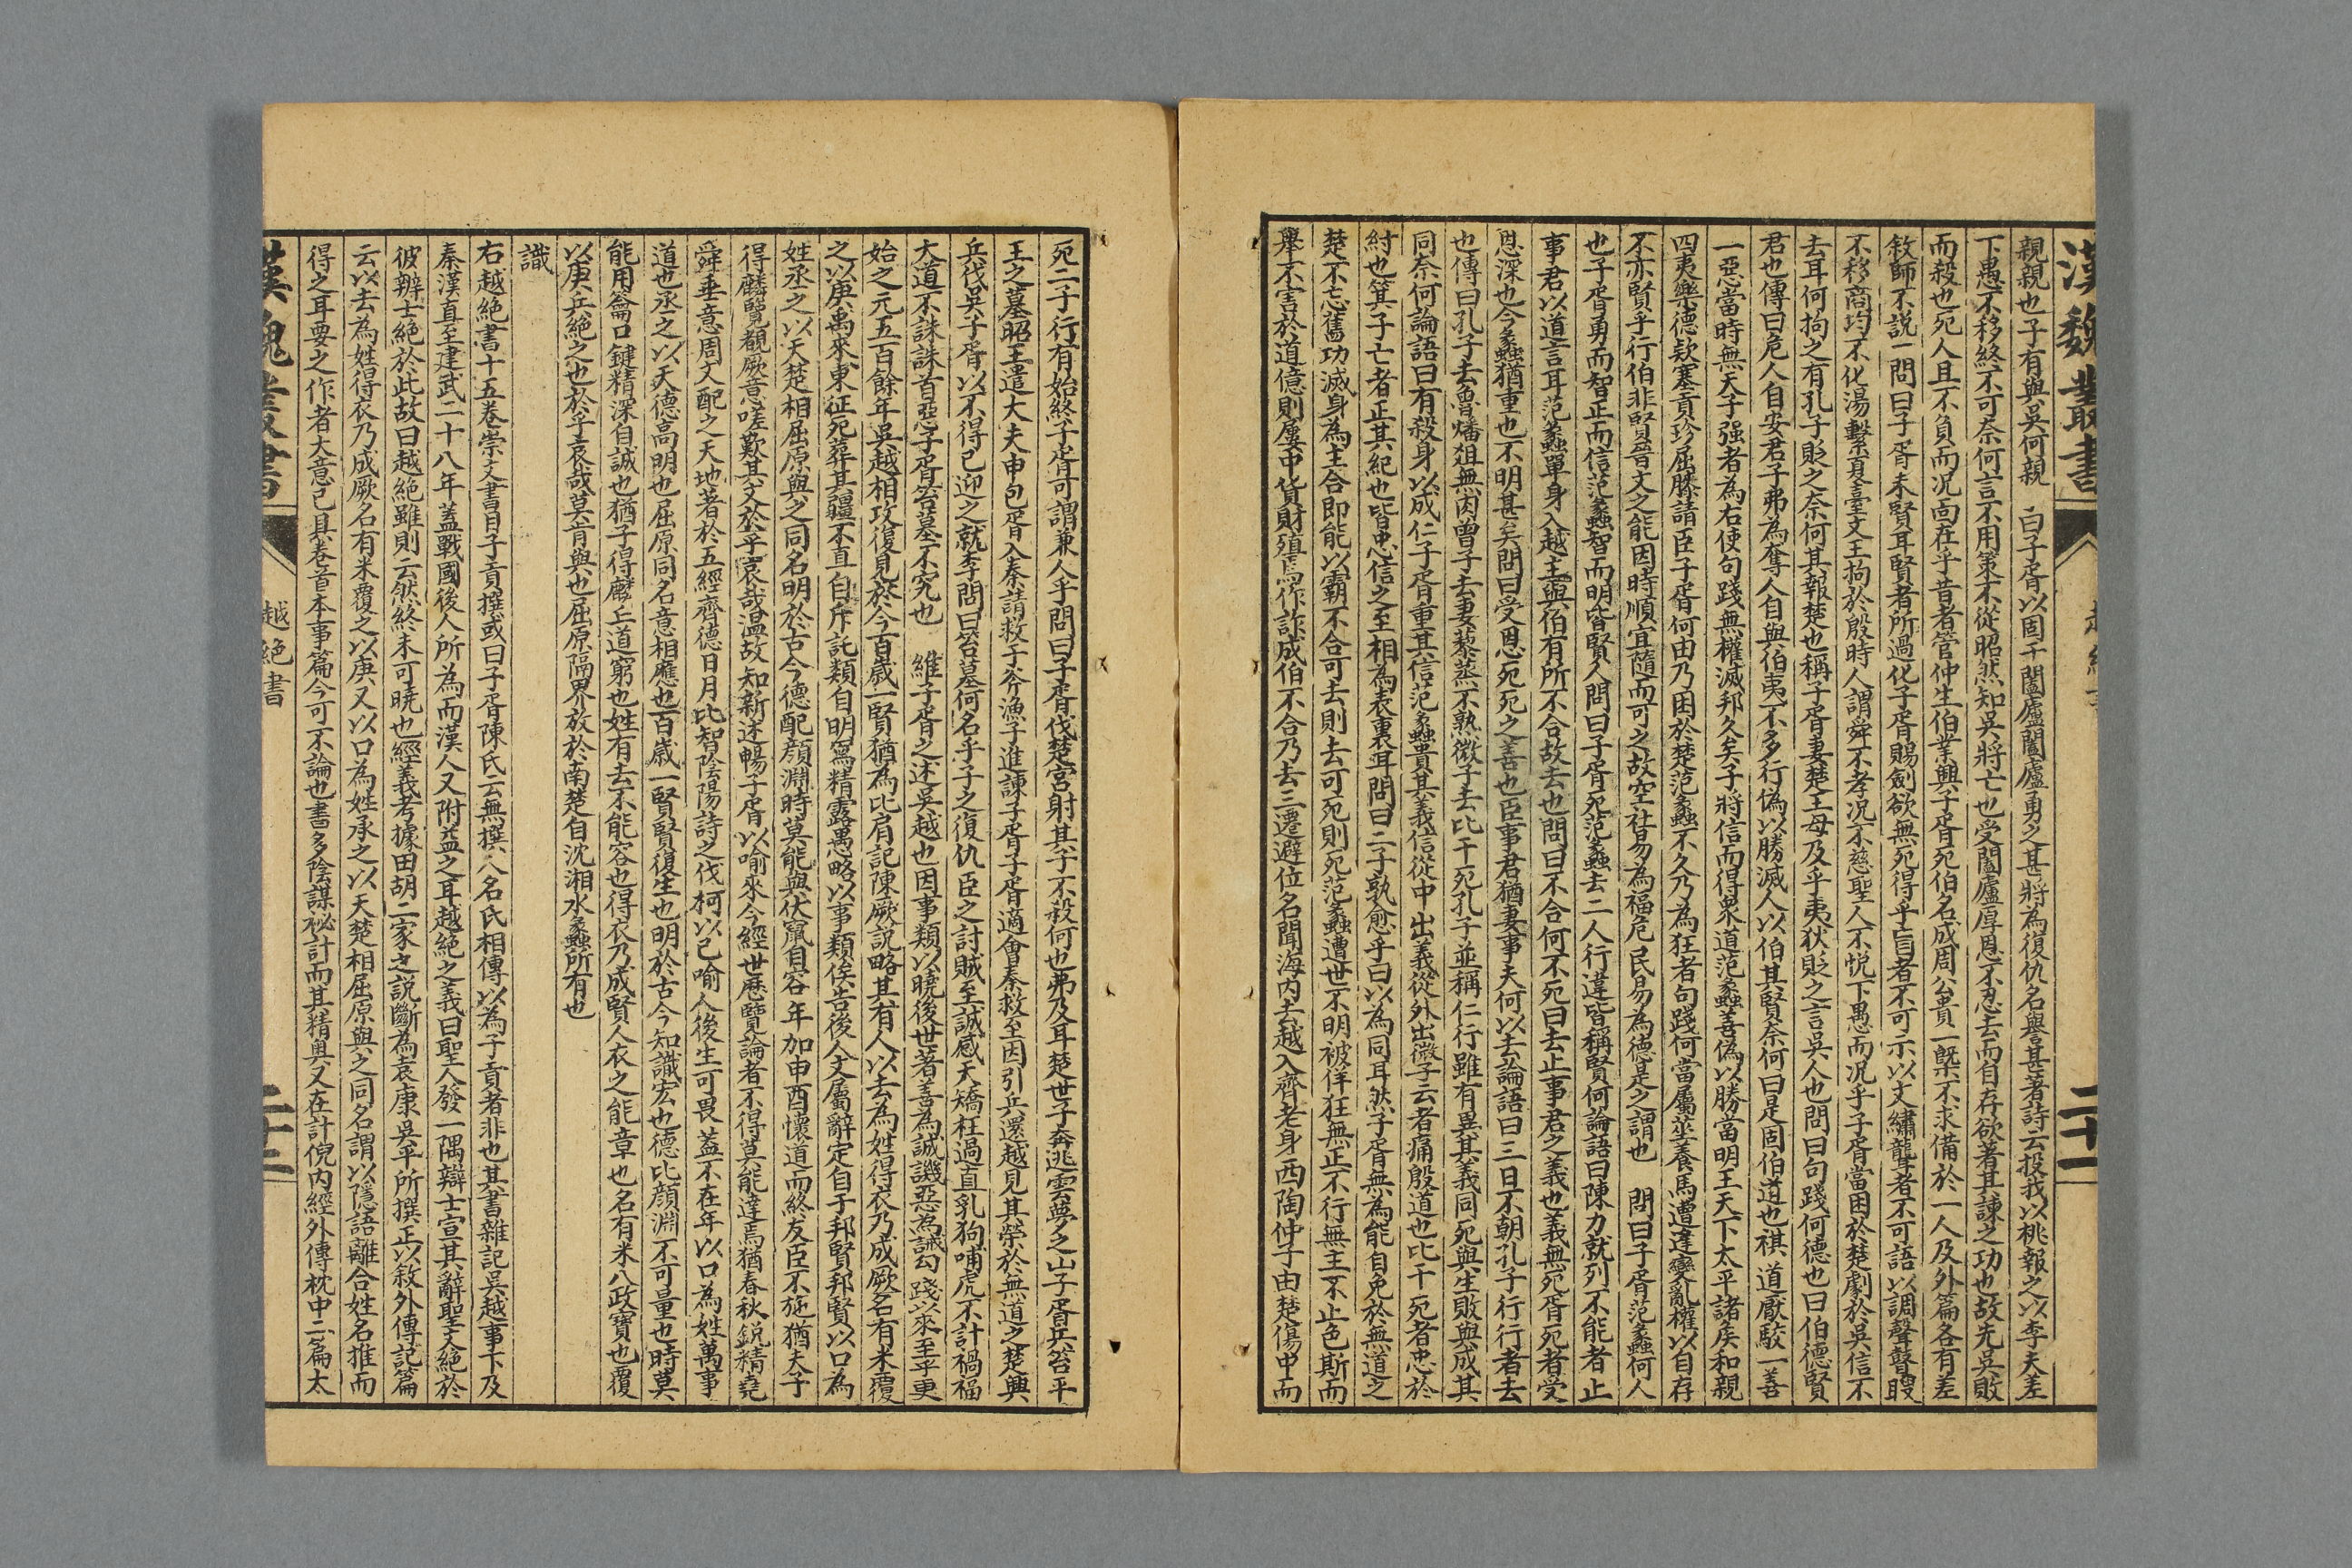 漢魏叢書
越絕書
二十一
親親也子有與吳何親 曰子胥以困于闔廬闔廬勇之甚將為復仇名譽甚著詩云投我以桃報之以李夫差
下愚不移終不可奈何言不用策不從昭然知吳將亡也受闔廬厚恩不忍去而自存欲著其諫之功也故先吳敗
而殺也死人且不負而況面在乎昔者管仲生伯業興子胥死伯名成周公貴一槩不求備於一人及外篇各有差
敘師不說一問曰子胥未賢耳賢者所過化子胥賜劍欲無死得乎盲者不可示以文繡聾者不可語以調聲瞽瞍
不移商均不化湯繫夏臺文王拘於殷時人謂舜不孝況不慈聖人不悅下愚而況乎子胥當困於楚劇於吳信不
去耳何拘之有孔子貶之奈何其報楚也稱子胥妻楚王母及乎夷狄貶之言吳人也問曰句踐何德也曰伯德賢
君也傳曰危人自安君子弗為奪人自與伯夷不多行偽以勝滅人以伯其賢奈何曰是固伯道也祺道厭駮一善
一惡當時無天子强者為右使句踐無權滅邦久矣子將信而得衆道范蠡善偽以勝當明王天下太平諸矦和親
四夷樂德款塞貢珍屈膝請臣子胥何由乃困於楚范蠡不久乃為狂者句踐何當屬坐養馬遭逢變亂權以自存
不亦賢乎行伯非賢晉文之能因時順宜隨而可之故空社易為福危民易為德是之謂也 問曰子胥范蠡何人
也子胥勇而智正而信范蠡智而明皆賢人問曰子胥死范蠡去二人行違皆稱賢何論語曰陳力就列不能者止
事君以道言耳范蠡單身入越主與伯有所不合故去也問曰不合何不死曰去止事君之義也義無死胥死者受
恩深也今蠡猶重也不明甚矣問曰受恩死死之善也臣事君猶妻事夫何以去論語曰三日不朝孔子行行者去
也傳曰孔子去魯燔俎無肉曾子去妻藜蒸不熟微子去比干死孔子並稱仁行雖有異其義同死與生敗與成其
同奈何論語曰有殺身以成仁子胥重其信范蠡貴其義信從中出義從外出微子云者痛殷道也比干死者忠於
紂也箕子亡者正其紀也皆忠信之至相為表裏耳問曰二子孰愈乎曰以為同耳然子胥無為能自免於無道之
楚不忘舊功滅身為主合即能以霸不合可去則去可死則死范蠡遭世不明被佯狂無正不行無主不止色斯而
舉不害於道億則屢中貨財殖焉作詐成伯不合乃去三遷避位名聞海內去越入齊老身西陶仲子由楚傷中而
死二子行有始終子胥可謂兼人乎問曰子胥伐楚宮射其子不殺何也弗及耳楚世子奔逃雲夢之山子胥兵笞平
王之墓昭王遣大夫申包胥入秦請救于斧漁子進諫子胥子胥適會秦救至因引兵還越見其榮於無道之楚興
兵伐吳子胥以不得已迎之就李問曰笞墓何名乎子之復仇臣之討賊至誠感天矯枉過直乳狗哺虎不計禍福
大道不誅誅首惡子胥笞墓不究也 維子胥之述吳越也因事類以曉後世著善為誠譏惡為誡勾踐以來至乎更
始之元五百餘年吳越相攻復見於今百歲一賢猶為比肩記陳厥說略其有人以去為姓得衣乃成厥名有米覆
之以庚禹來東征死葬其疆不直自斥託類自明寫精露愚略以事類俟告後人文屬辭定自于邦賢邦賢以口為
姓丞之以天楚相屈原與之同名明於古今德配顏淵時莫能與伏竄自容年加申酉懷道而終友臣不施猶夫子
得麟覽覩厥意嗟歎其文於乎哀哉溫故知新述暢子胥以喻來今經世歷覽論者不得莫能達焉猶春秋銳精堯
舜垂意周文配之天地著於五經齊德日月比智陰陽詩之伐柯以己喻人後生可畏蓋不在年以口為姓萬事
道也丞之以天德高明也屈原同名意相應也百歲一賢賢復生也明於古今知識宏也德比顏淵不可量也時莫
能用籥口鍵精深自誠也猶子得麟丘道窮也姓有去不能容也得衣乃成賢人衣之能章也名有米八政寶也覆
以庚兵絕之也於乎哀哉莫肯與也屈原隔界放於南楚自沈湘水蠡所有也
識
右越絕書十五卷崇文書目子貢撰或曰子胥陳氏云無撰人名氏相傳以為子貢者非也其書雜記吳越事下及
秦漢直至建武二十八年蓋戰國後人所為而漢人又附益之耳越絕之義曰聖人發一隅辯士宣其辭聖文絕於
彼辨士絕於此故曰越絕雖則云然終未可曉也經義考據田胡二家之說斷為袁康吳平所撰正以敘外傳記篇
云以去為姓得衣乃成厥名有米覆之以庚又以口為姓承之以天楚相屈原與之同名謂以隱語離合姓名推而
得之耳要之作者大意已具卷首本事篇今可不論也書多陰謀祕計而其精奧又在計倪內經外傳枕中二篇太
漢魏叢書
越絕書
二十二